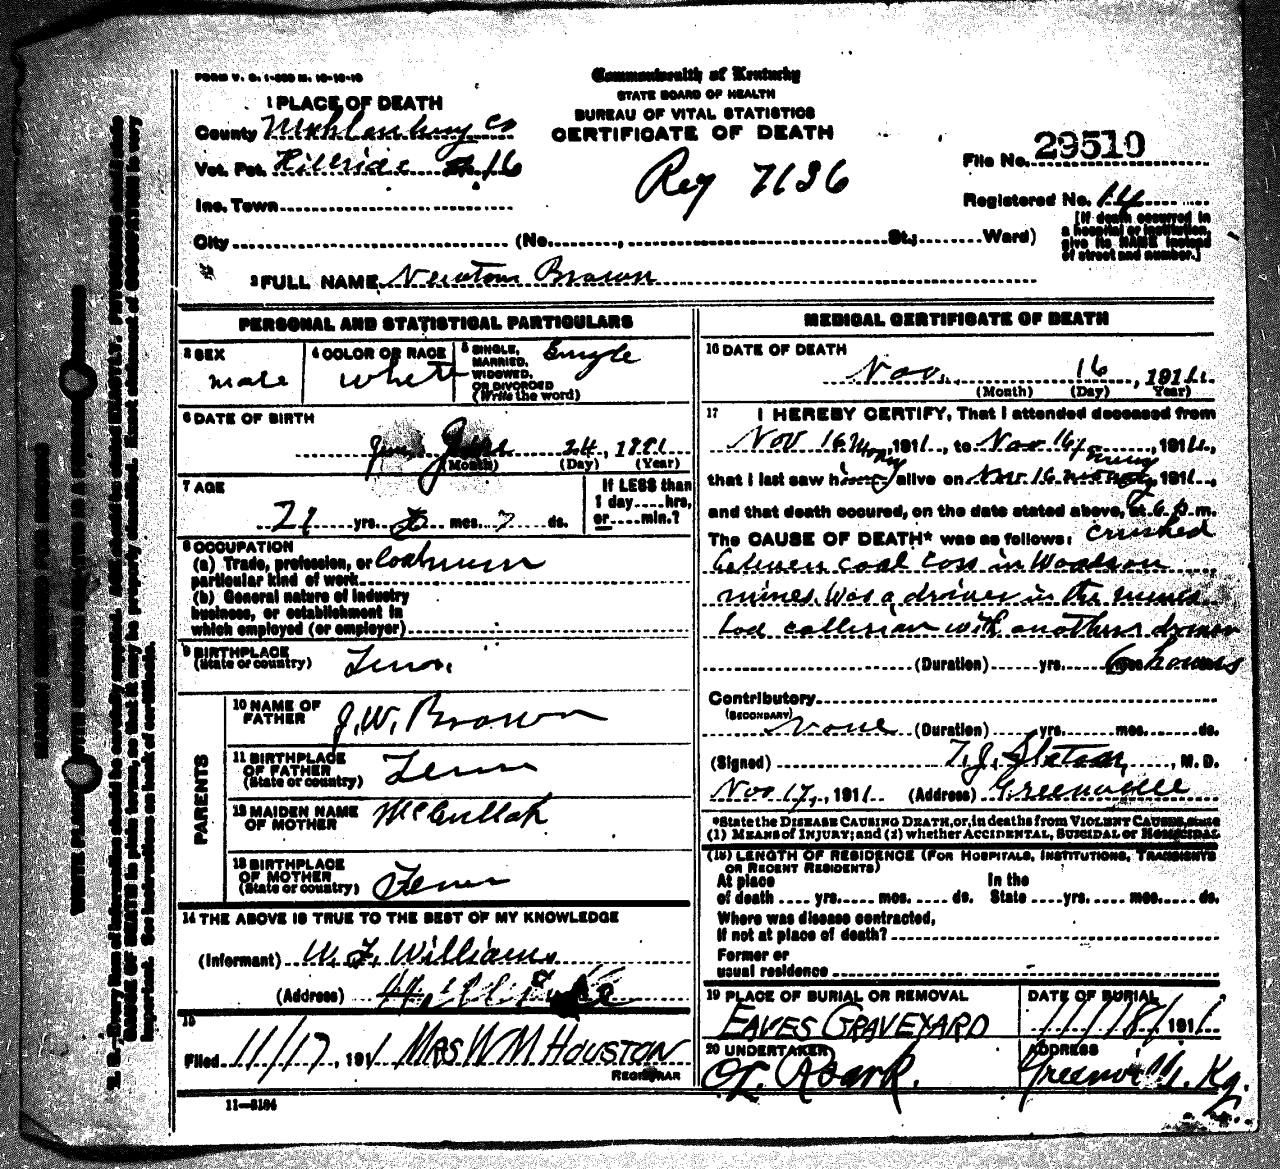 FORM V. S. 1-
Commonwealth of Kentucky
STATE BOARD OF HEALTH
BUREAU OF VITAL STATISTICS
CERTIFICATE OF DEATH
1 PLACE OF DEATH
County Muhlenburg Co
Vot. Pct. Hillside 16
Inc. Town
City (No. , St.; Ward)
Reg 7136
File No. 29510
Registered No. 14
[If death occurred in
a hospital or institution,
give its NAME instead
of street and number.]
2 FULL NAME Newton Brown
PERSONAL AND STATISTICAL PARTICULARS
3 SEX
male
4 COLOR OR RACE
white
5 SINGLE, MARRIED, WIDOWED, OR DIVORCED (Write the word)
Single
6 DATE OF BIRTH
24, 1
(Month) (Day) (Year)
7 AGE
yrs. mos. 7 ds.
If LESS than
1 day....hrs,
or....min.?
8 OCCUPATION
(a) Trade, profession, or
particular kind of work
(b) General nature of industry
business, or establishment in
which employed (or employer)
9 BIRTHPLACE
(State or country) Tenn.
PARENTS
10 NAME OF FATHER J. W. Brown
11 BIRTHPLACE OF FATHER (State or country) Tenn
12 MAIDEN NAME OF MOTHER McCullah
13 BIRTHPLACE OF MOTHER (State or country) Tenn
14 THE ABOVE IS TRUE TO THE BEST OF MY KNOWLEDGE
(Informant) W. F. Williams
(Address) Hillside
15
Filed 11/17, 1911 MRS W M HOUSTON
REGISTRAR
11—3184
MEDICAL CERTIFICATE OF DEATH
16 DATE OF DEATH
Nov. 16, 1911
(Month) (Day) (Year)
17 I HEREBY CERTIFY, That I attended deceased from
Nov 16, 1911, to Nov 16, 1911,
that I last saw him alive on Nov 16, 1911,
and that death occured, on the date stated above, at 6 p.m.
The CAUSE OF DEATH* was as follows: crushed
between coal cars in Woodson
mines. Was a driver in the mines
had collision with another driver
(Duration) yrs. 6 hours
Contributory
(SECONDARY)
None (Duration) yrs. mos. ds.
(Signed) T. J. Slaton, M. D.
Nov 17, 1911 (Address) Greenville
*State the DISEASE CAUSING DEATH, or, in deaths from VIOLENT CAUSES, state
(1) MEANS of INJURY; and (2) whether ACCIDENTAL, SUICIDAL or HOMICIDAL
(18) LENGTH OF RESIDENCE (FOR HOSPITALS, INSTITUTIONS, TRANSIENTS
OR RECENT RESIDENTS)
At place In the
of death yrs. mos. ds. State yrs. mos. ds.
Where was disease contracted,
If not at place of death?
Former or
usual residence
19 PLACE OF BURIAL OR REMOVAL
EAVES GRAVEYARD
DATE OF BURIAL
11/18/, 1911
20 UNDERTAKER
ADDRESS
Greenville. Ky.